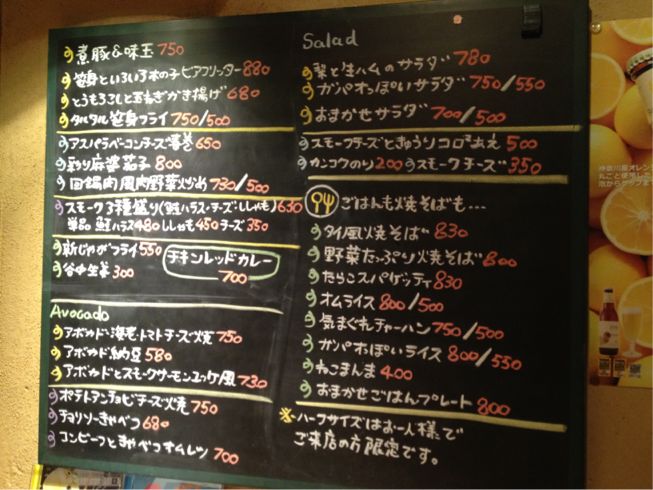 煮豚&味玉 750
笹身といろいろ木の子ビアフリッター 880
とうもろこしと玉ねぎかき揚げ 680
タルタル笹身フライ 750/500
アスパラベーコンチーズ春巻 650
彩り麻婆茄子 800
回鍋肉風肉野菜炒め 730/500
スモーク3種盛り(鮭ハラス・チーズ・ししゃも) 630
単品 鮭ハラス480 ししゃも450 チーズ350
新じゃがフライ 550
谷中生姜 300
チキンレッドカレー
700
Avocado
アボカド・海老・トマトチーズ焼 750
アボカド納豆 580
アボカドとスモークサーモンユッケ風 730
ポテトアンチョビチーズ焼 750
チョリソーきゃべつ 680
コンビーフときゃべつオムレツ 700
Salad
梨と生ハムのサラダ 780
ガパオっぽいサラダ 750/550
おまかせサラダ 700/500
スモークチーズときゅうりコロコロあえ 500
カンコクのり 200 スモークチーズ 350
ごはんも焼そばも...
タイ風焼そば 830
野菜たっぷり焼そば 800
たらこスパゲッティ 830
オムライス 800/500
気まぐれチャーハン 750/500
ガパオっぽいライス 800/550
ねこまんま 400
おまかせごはんプレート 800
※ハーフサイズはお一人様で
ご来店の方限定です。
神奈川産オレンジ
丸ごと使用した